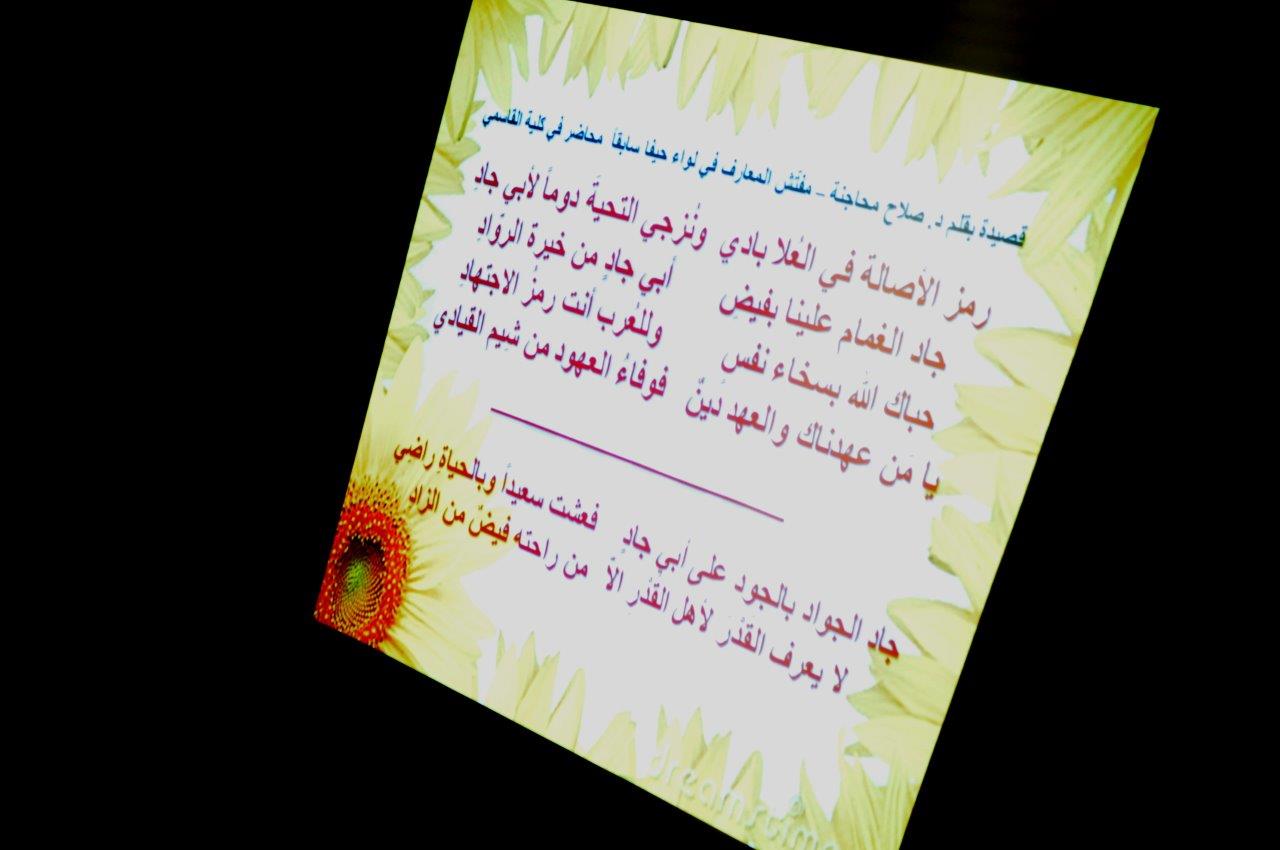 قصيدة بقلم د. صلاح محاجنة – مفتش المعارف في لواء حيفا سابقاً محاضر في كلية القاسمي
رمز الأصالة في العُلا بادي ونُزجي التحيةَ دوماً لأبي جادِ
جاد الغمام علينا بفيضِ أبي جادٍ من خيرة الروّادِ
حباك الله بسخاء نفس وللعُرب أنت رمزُ الاجتهادِ
يا مَن عهدناك والعهد دَينٌ فوفاءُ العهود من شيِم القيادي
جاد الجواد بالجود على أبي جادٍ فعشت سعيداً وبالحياةِ راضِي
لا يعرف القَدْرَ لأهل القَدْرِ الاّ من راحته فيضٌ من الزاد
dreamstime